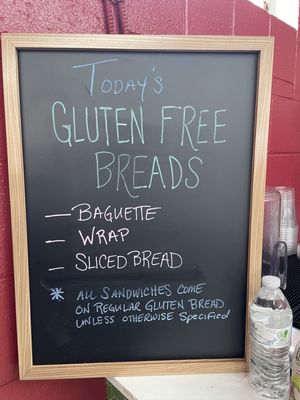 TODAY'S
GLUTEN FREE
BREADS
— BAGUETTE
— WRAP
— SLICED BREAD
* ALL SANDWICHES COME
ON REGULAR GLUTEN BREAD
UNLESS OTHERWISE Specified